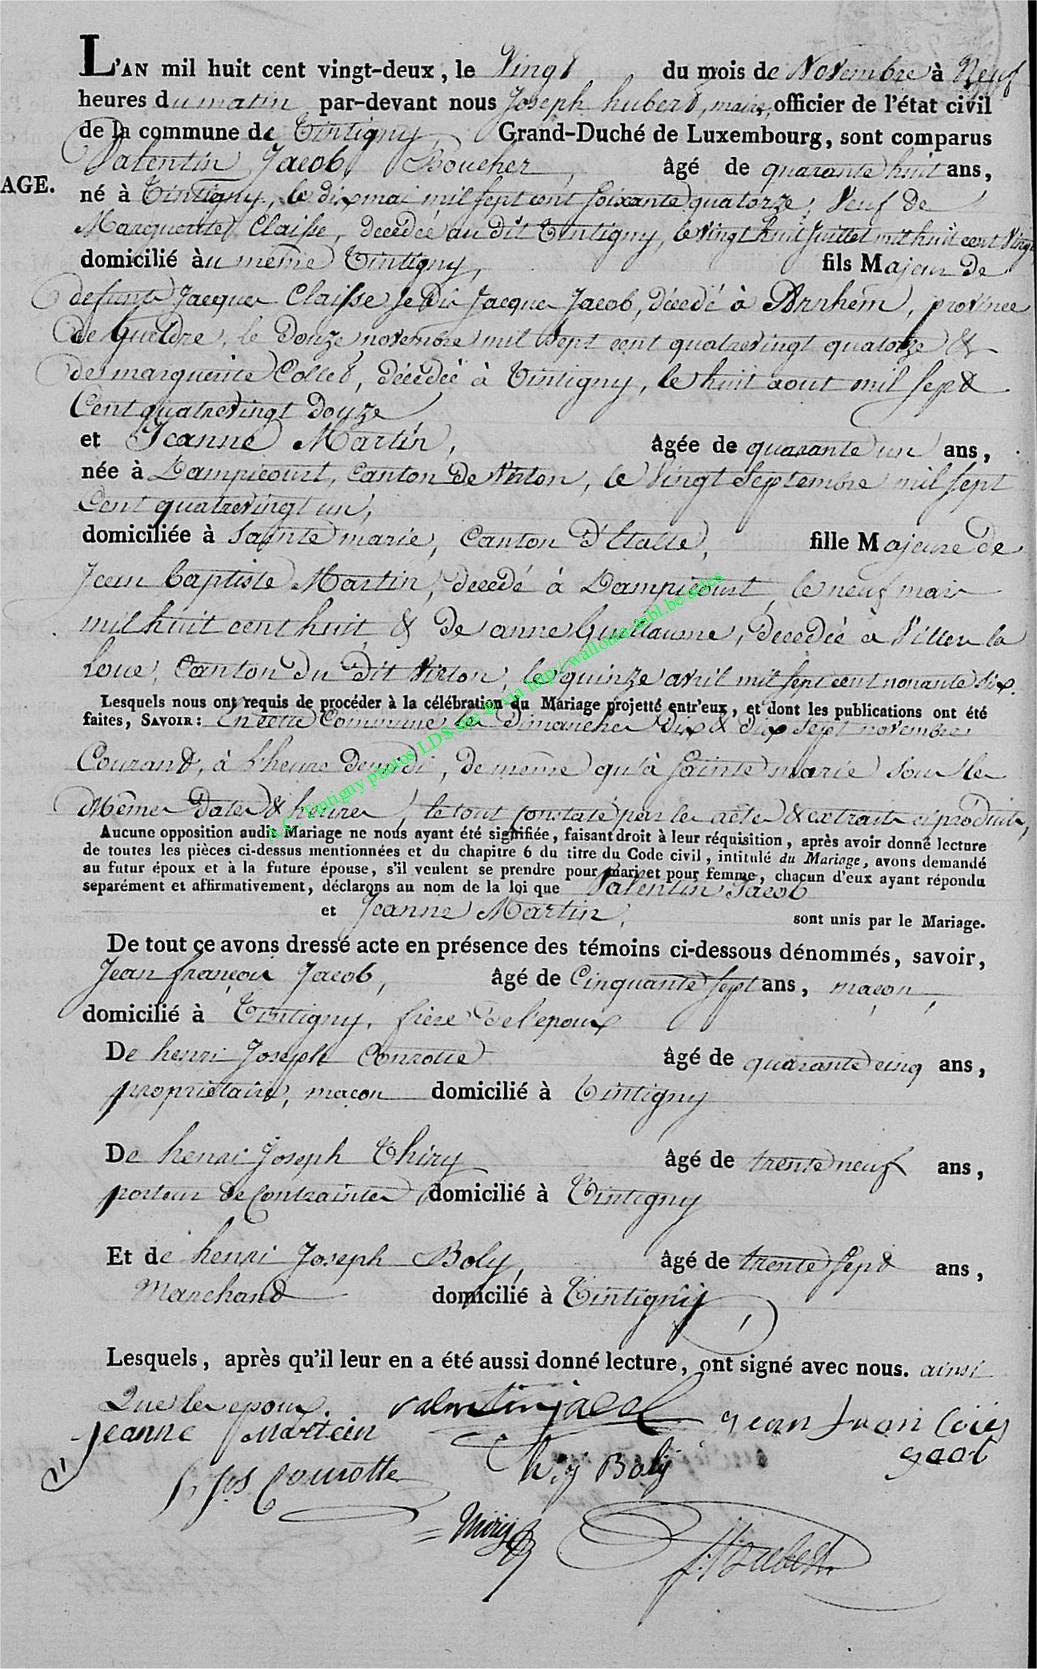 L'AN mil huit cent vingt-deux, le Vingt du mois de Novembre à Neuf
heures du matin par-devant nous Joseph hubert, maire, officier de l'état civil
de la commune de Tintigny Grand-Duché de Luxembourg, sont comparus
Valentin Jacob, Boucher, âgé de quarante huit ans,
AGE.
né à Tintigny, le dix mai mil sept cent soixante quatorze, Veuf de
Marguerite Claisse, decedée au dit Tintigny, le vingt huit juillet mil huit cent Vingt
domicilié au même Tintigny, fils Majeur de
defunts Jacques Claisse se dit Jacques Jacob, décédé à Arnhem, province
de Gueldre, le Douze novembre mil sept cent quatrevingt quatorze &
de marguerite Collet, décédée à Tintigny, le huit aout mil sept
Cent quatrevingt douze
et Jeanne Martin, âgée de quarante un ans,
née à Dampicourt, Canton de Virton, le Vingt Septembre mil sept
Cent quatrevingt un,
domiciliée à Sainte marie, Canton d'Etalle, fille Majeure de
Jean baptiste Martin, decedé à Dampicourt, le neuf mars
mil huit cent huit & de anne Guillaume, decedée a Villers la
Loue, Canton du Dit Virton, le quinze avril mil sept cent nonante six.
Lesquels nous ont requis de procéder à la célébration du Mariage projetté entr'eux, et dont les publications ont été
faites, SAVOIR: En cette Commune les Dimanches Dix & Dix Sept novembre
Courant, à l'heure de midi, de même qu'à Sainte marie sous les
Mêmes Dates & heures, le tout constaté par les actes & extraits ci produits,
Aucune opposition audit Mariage ne nous ayant été signifiée, faisant droit à leur réquisition, après avoir donné lecture
de toutes les pièces ci-dessus mentionnées et du chapitre 6 du titre du Code civil, intitulé du Mariage, avons demandé
au futur époux et à la future épouse, s'il veulent se prendre pour mari et pour femme, chacun d'eux ayant répondu
séparément et affirmativement, déclarons au nom de la loi que Valentin Jacob
et Jeanne Martin, sont unis par le Mariage.
De tout ce avons dressé acte en présence des témoins ci-dessous dénommés, savoir,
Jean françois Jacob, âgé de Cinquante sept ans, maçon,
domicilié à Tintigny, frère de l'epoux
De henri Joseph Conrotte âgé de quarante cinq ans,
propriétaire, maçon domicilié à Tintigny
De henri Joseph Thiry âgé de trente neuf ans,
porteur de Contraintes domicilié à Tintigny
Et de henri Joseph Boly, âgé de trente sept ans,
Marchand domicilié à Tintigny
Lesquels, après qu'il leur en a été aussi donné lecture, ont signé avec nous. ainsi
Que les epoux.
valentin jacob
Jeanne Martein
jean fran cois
jacob
h jos Conrotte
h. j Boly
Thiry
J. Hubert
A.C. Tintigny photos LDS mis en ligne via http://wallonia-asbl.be/actes